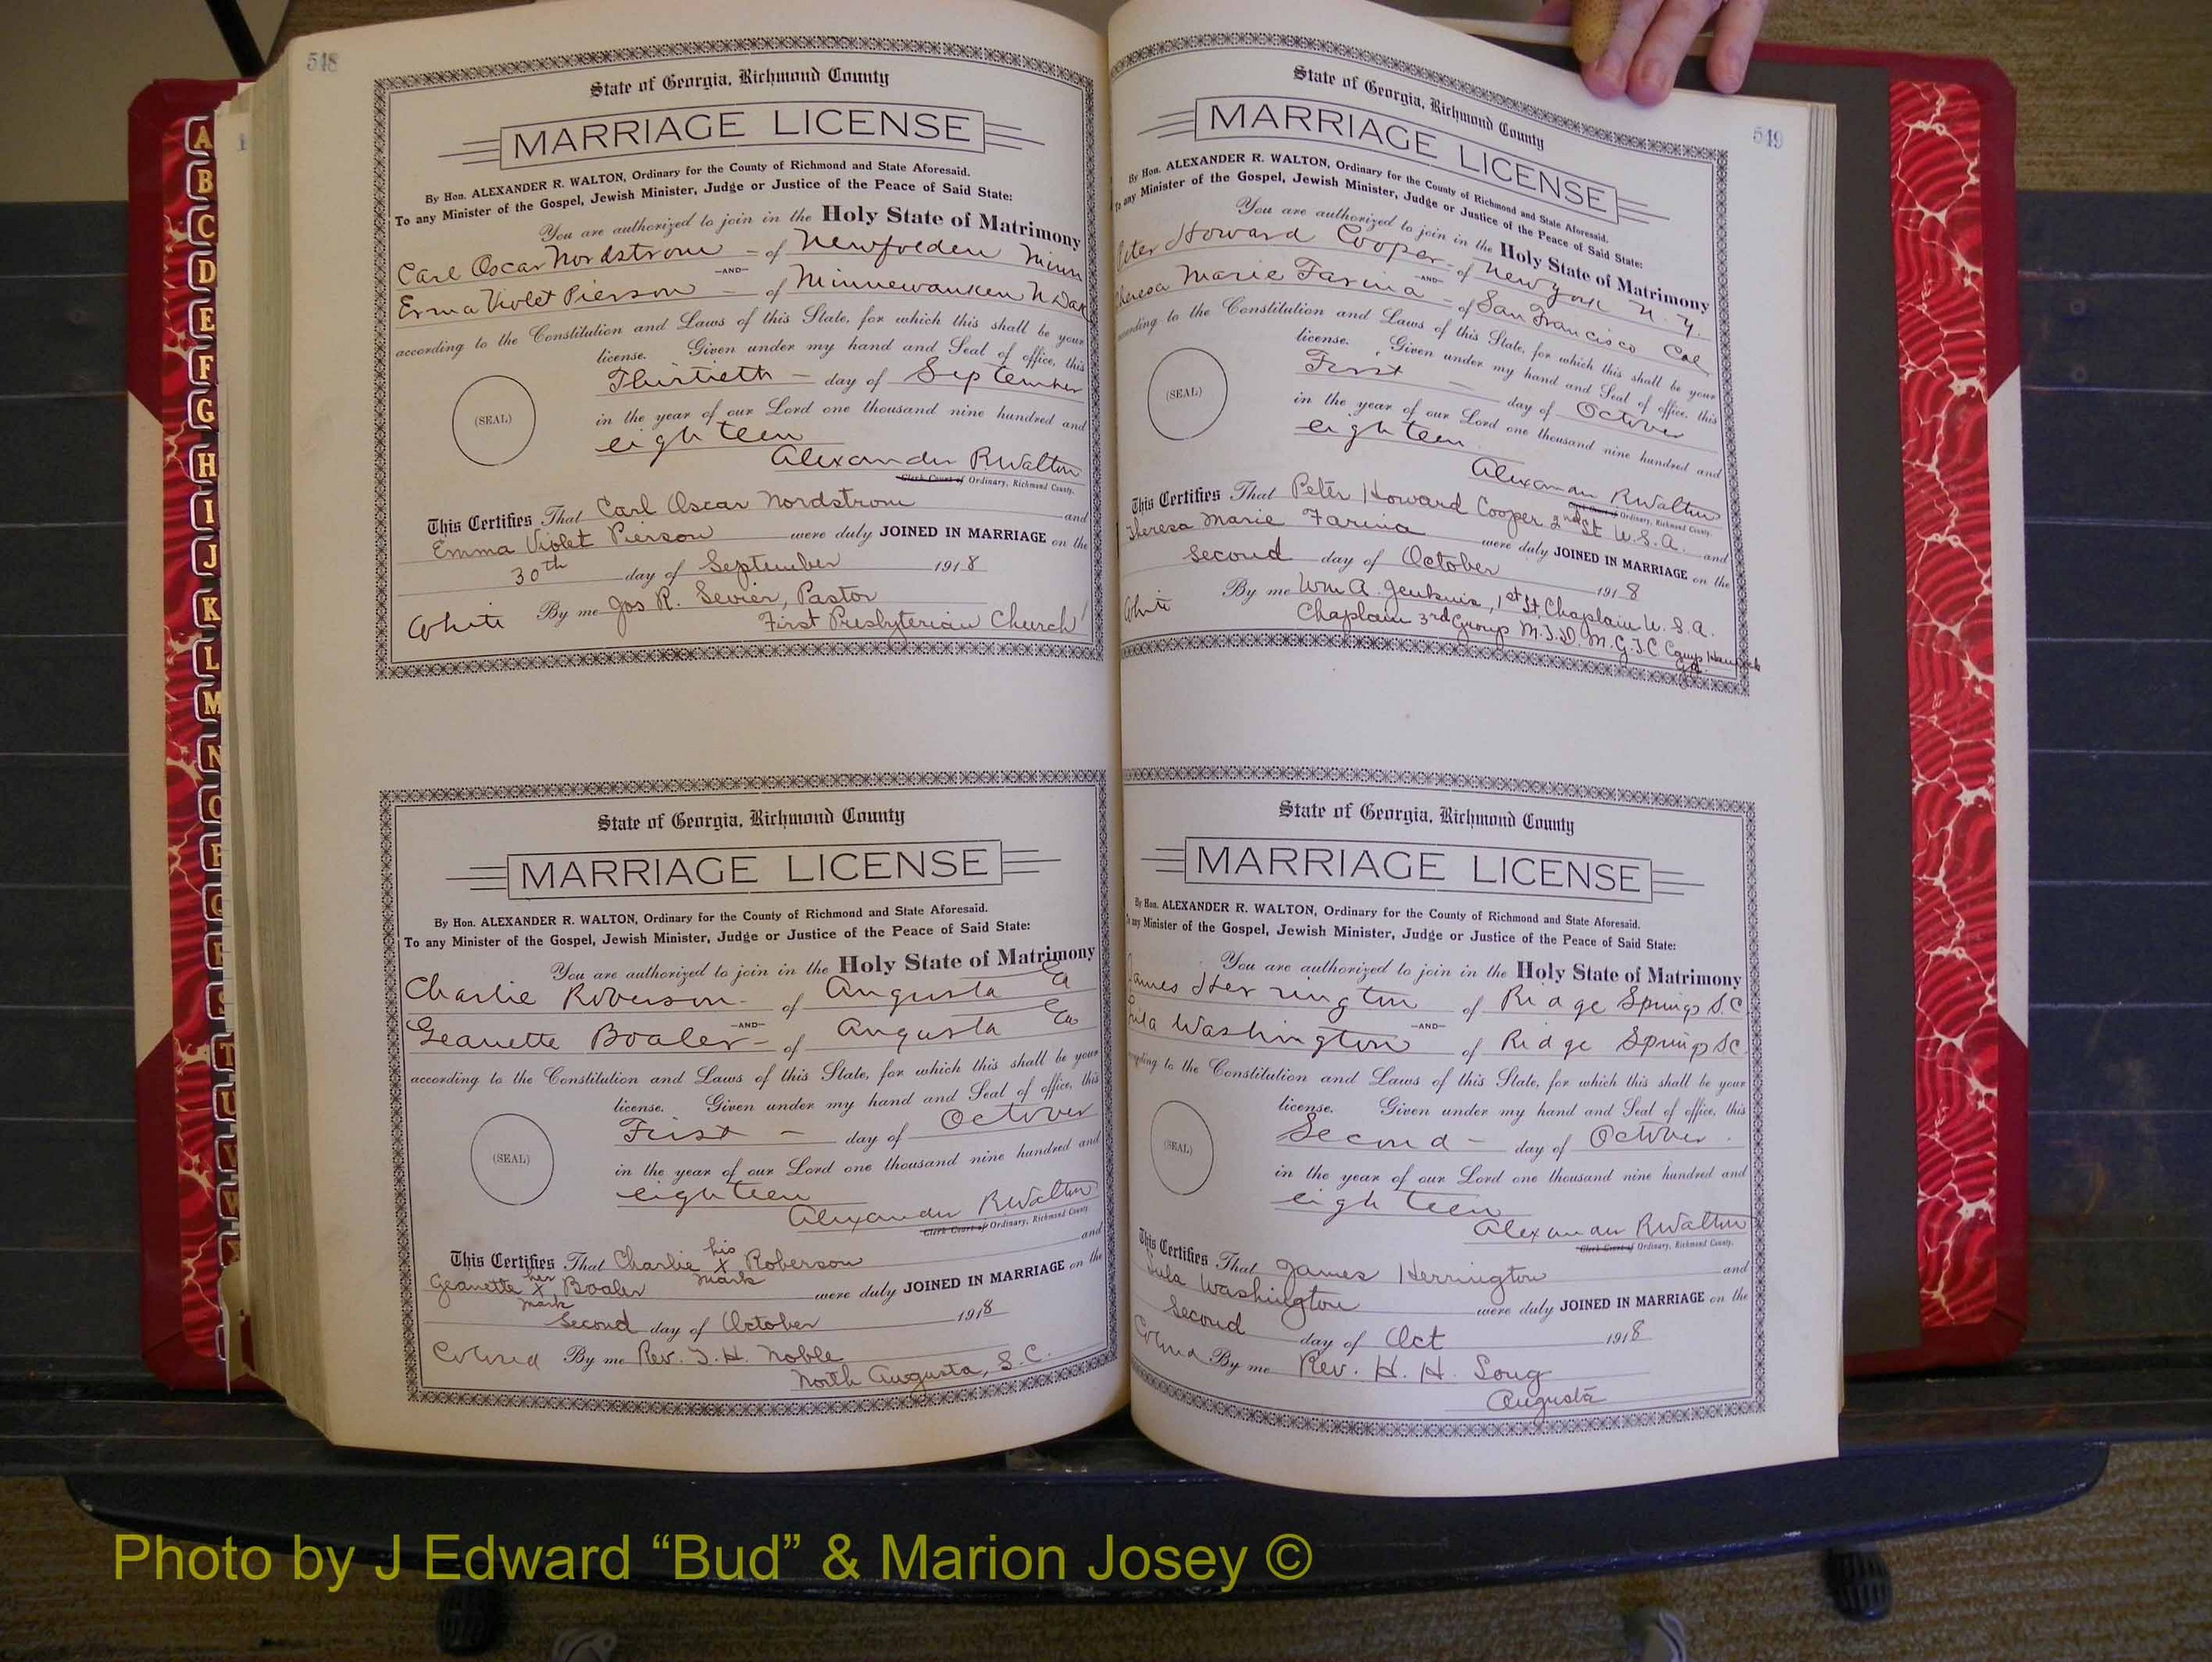 548
State of Georgia, Richmond County
MARRIAGE LICENSE
By Hon. ALEXANDER R. WALTON, Ordinary for the County of Richmond and State Aforesaid.
To any Minister of the Gospel, Jewish Minister, Judge or Justice of the Peace of Said State:
You are authorized to join in the Holy State of Matrimony
Carl Oscar Nordstrom - of Newfolden Minn
-AND-
Erma Violet Pierson - of Minnewauken N Dak
according to the Constitution and Laws of this State, for which this shall be your
license. Given under my hand and Seal of office, this
Thirtieth - day of September
(SEAL)
in the year of our Lord one thousand nine hundred and
eighteen
Alexander R Walton
Clerk Court of Ordinary, Richmond County.
This Certifies That Carl Oscar Nordstrom and
Emma Violet Pierson were duly JOINED IN MARRIAGE on the
30th day of September 1918
White By me Jos R. Sevier, Pastor
First Presbyterian Church
State of Georgia, Richmond County
MARRIAGE LICENSE
By Hon. ALEXANDER R. WALTON, Ordinary for the County of Richmond and State Aforesaid.
To any Minister of the Gospel, Jewish Minister, Judge or Justice of the Peace of Said State:
You are authorized to join in the Holy State of Matrimony
Charlie Roberson - of Augusta Ga
-AND-
Geanette Boaler - of Augusta Ga
according to the Constitution and Laws of this State, for which this shall be your
license. Given under my hand and Seal of office, this
First - day of October
(SEAL)
in the year of our Lord one thousand nine hundred and
eighteen
Alexander R Walton
Clerk Court of Ordinary, Richmond County.
This Certifies That Charlie his x mark Roberson and
Geanette her x mark Boaler were duly JOINED IN MARRIAGE on the
Second day of October 1918
Colored By me Rev. T. H. Noble
North Augusta, S.C.
549
State of Georgia, Richmond County
MARRIAGE LICENSE
By Hon. ALEXANDER R. WALTON, Ordinary for the County of Richmond and State Aforesaid.
To any Minister of the Gospel, Jewish Minister, Judge or Justice of the Peace of Said State:
You are authorized to join in the Holy State of Matrimony
Peter Howard Cooper - of New York N.Y.
-AND-
Theresa Marie Farina - of San Francisco Cal
according to the Constitution and Laws of this State, for which this shall be your
license. Given under my hand and Seal of office, this
First - day of October
(SEAL)
in the year of our Lord one thousand nine hundred and
eighteen
Alexander R Walton
Clerk Court of Ordinary, Richmond County.
This Certifies That Peter Howard Cooper 2nd Lt U.S.A. and
Theresa Marie Farina were duly JOINED IN MARRIAGE on the
second day of October 1918
White By me Wm A. Jenkins, 1st Lt Chaplain U.S.A.
Chaplain 3rd Group M.T.D. M.G.T.C Camp Hancock
Ga
State of Georgia, Richmond County
MARRIAGE LICENSE
By Hon. ALEXANDER R. WALTON, Ordinary for the County of Richmond and State Aforesaid.
To any Minister of the Gospel, Jewish Minister, Judge or Justice of the Peace of Said State:
You are authorized to join in the Holy State of Matrimony
James Herrington of Ridge Springs S.C
-AND-
Lula Washington of Ridge Springs SC
according to the Constitution and Laws of this State, for which this shall be your
license. Given under my hand and Seal of office, this
Second - day of October.
(SEAL)
in the year of our Lord one thousand nine hundred and
eighteen
Alexander R Walton
Clerk Court of Ordinary, Richmond County.
This Certifies That James Herrington and
Lula Washington were duly JOINED IN MARRIAGE on the
Second day of Oct 1918
Colored By me Rev. H. H. Long
Augusta
A
B
C
D
E
F
G
H
I
J
K
L
M
N
O
P
Q
R
S
T
U
V
W
Photo by J Edward “Bud” & Marion Josey ©